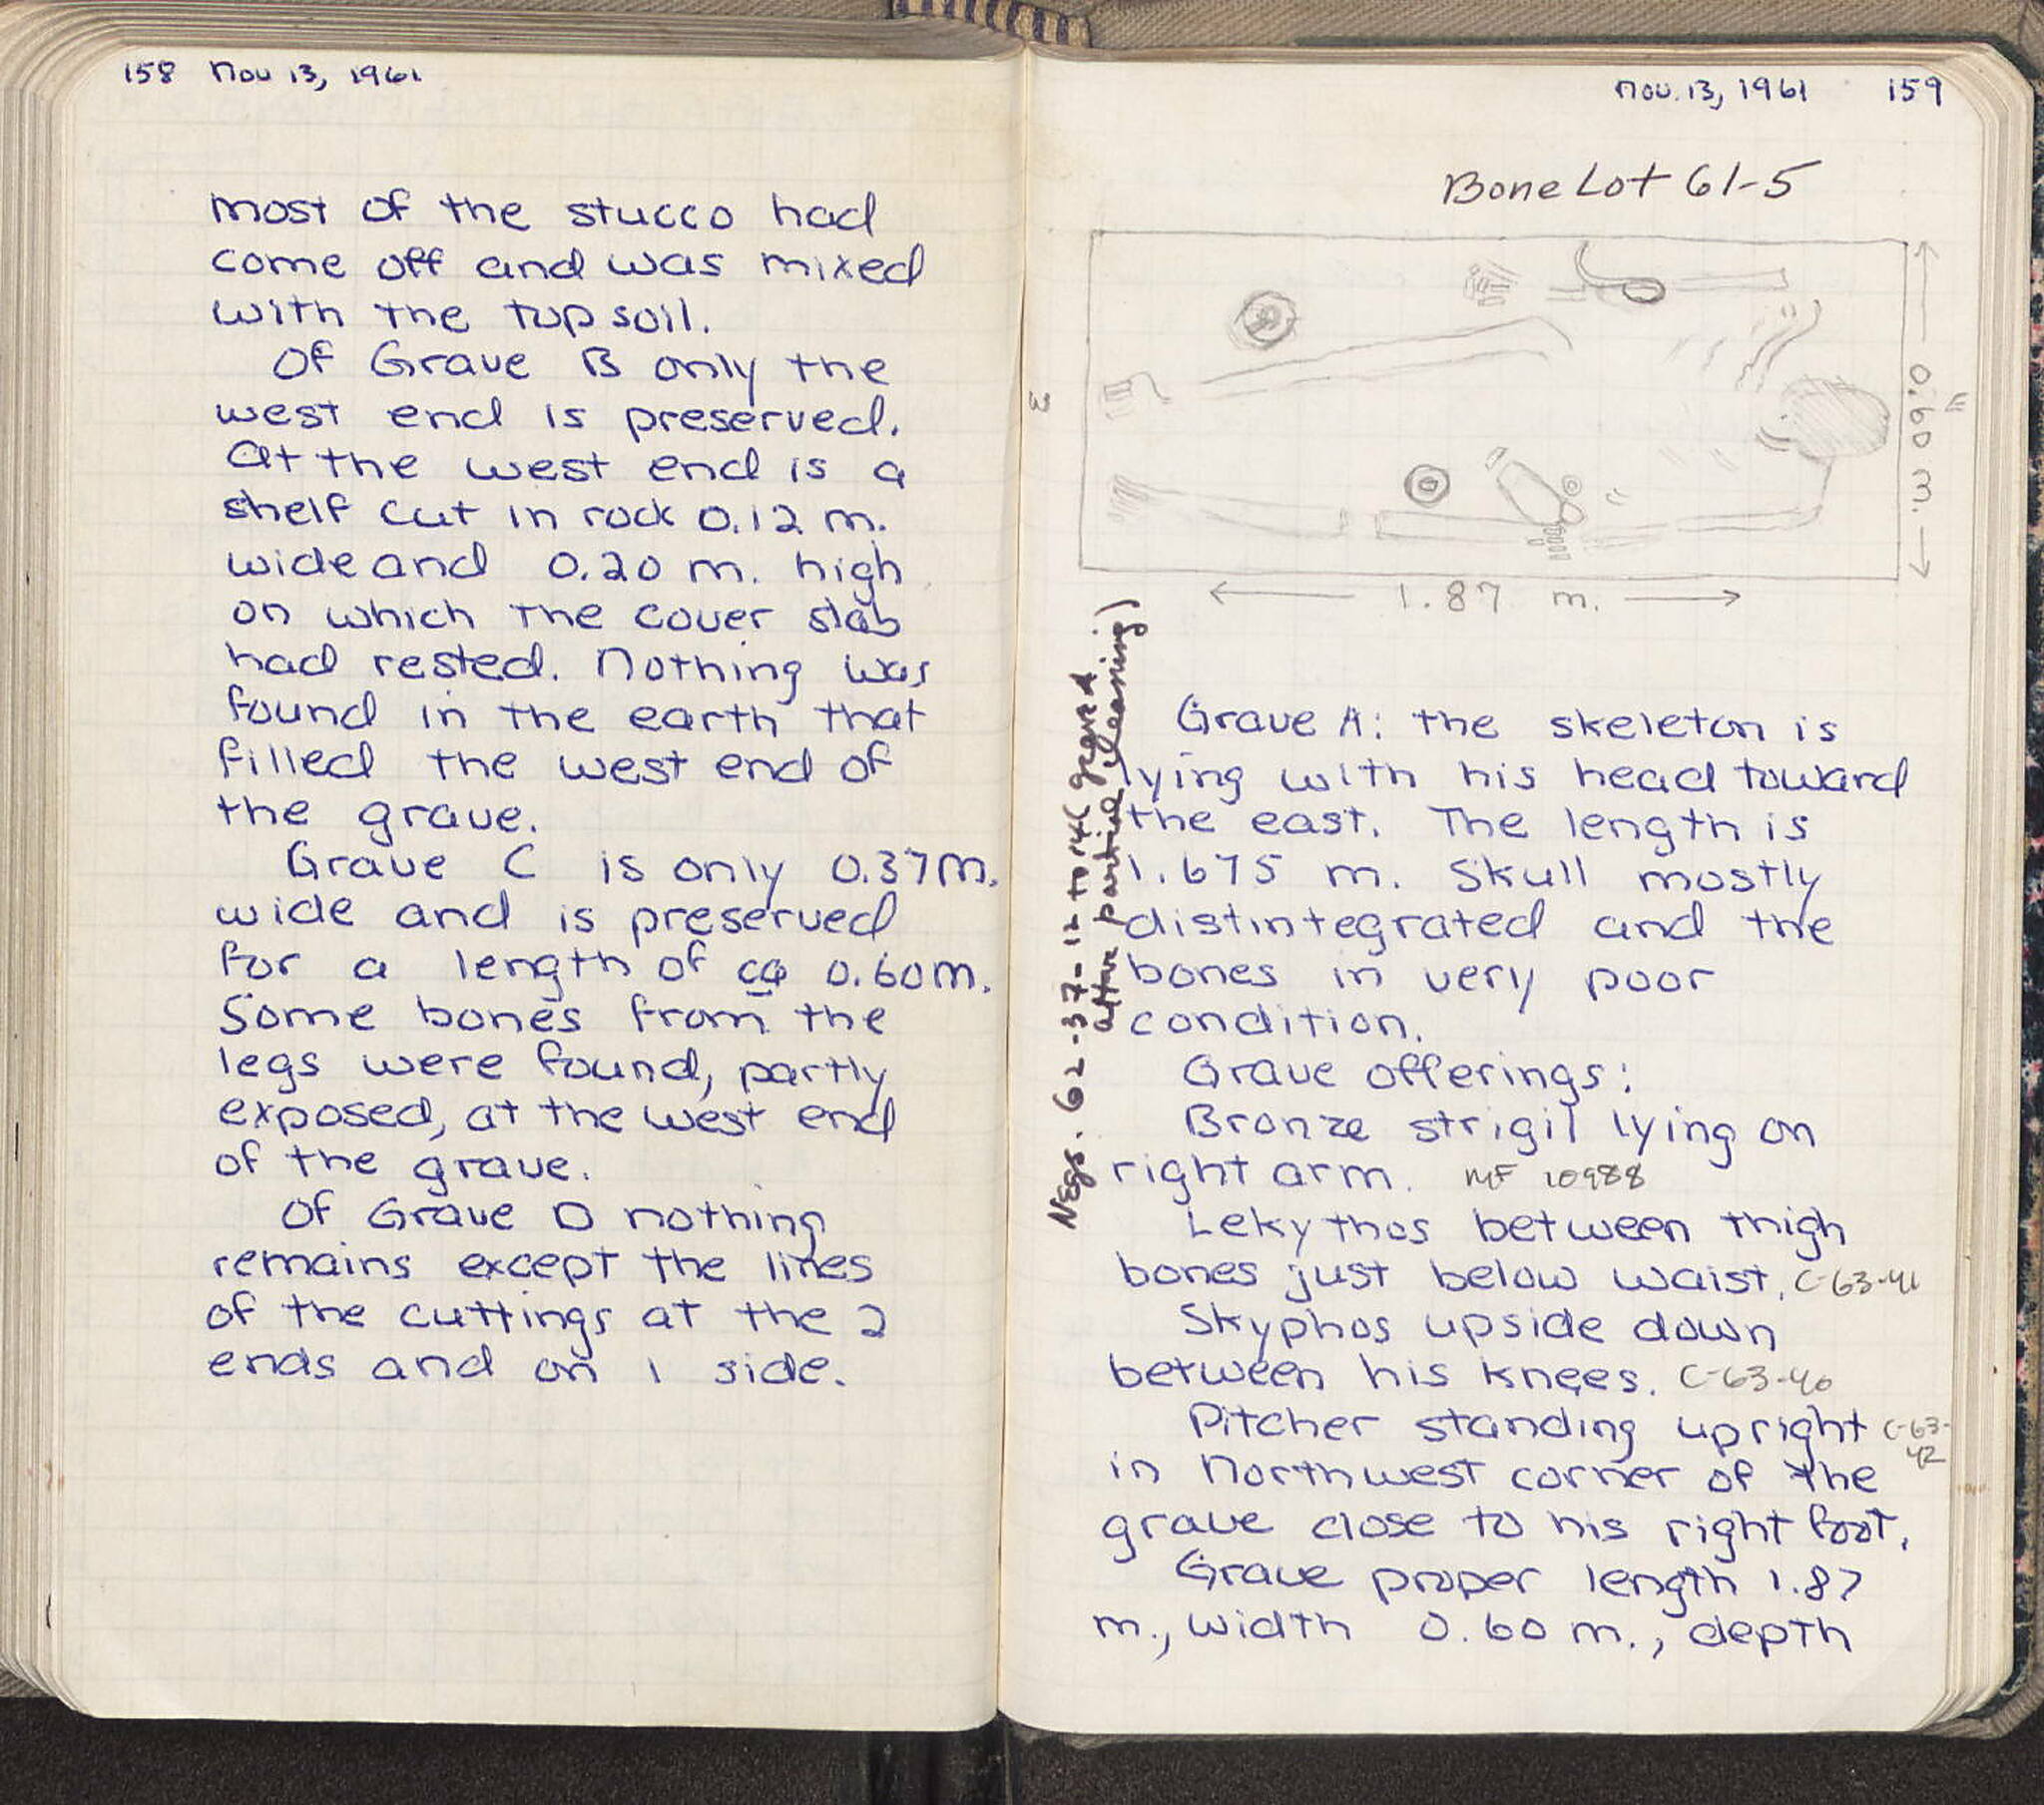 158 Nov 13, 1961
most of the stucco had
come off and was mixed
with the top soil.
Of Grave B only the
west end is preserved.
At the west end is a
shelf cut in rock 0.12 m.
wide and 0.20 m. high
on which the cover slab
had rested. Nothing was
found in the earth that
filled the west end of
the grave.
Grave C is only 0.37m.
wide and is preserved
for a length of ca 0.60m.
Some bones from the
legs were found, partly
exposed, at the west end
of the grave.
Of Grave D nothing
remains except the lines
of the cuttings at the 2
ends and on 1 side.
Nov. 13, 1961 159
Bone Lot 61-5
W
E
0.60 m.
1.87 m.
Negs. 62-37-12 to 14 (grave A
after partial cleaning)
Grave A: the skeleton is
lying with his head toward
the east. The length is
1.675 m. Skull mostly
distintegrated and the
bones in very poor
condition.
Grave offerings:
Bronze strigil lying on
right arm. MF 10988
Lekythos between thigh
bones just below waist. C-63-41
Skyphos upside down
between his knees. C-63-40
Pitcher standing upright C-63-
42
in Northwest corner of the
grave close to his right foot.
Grave proper length 1.87
m., width 0.60 m., depth